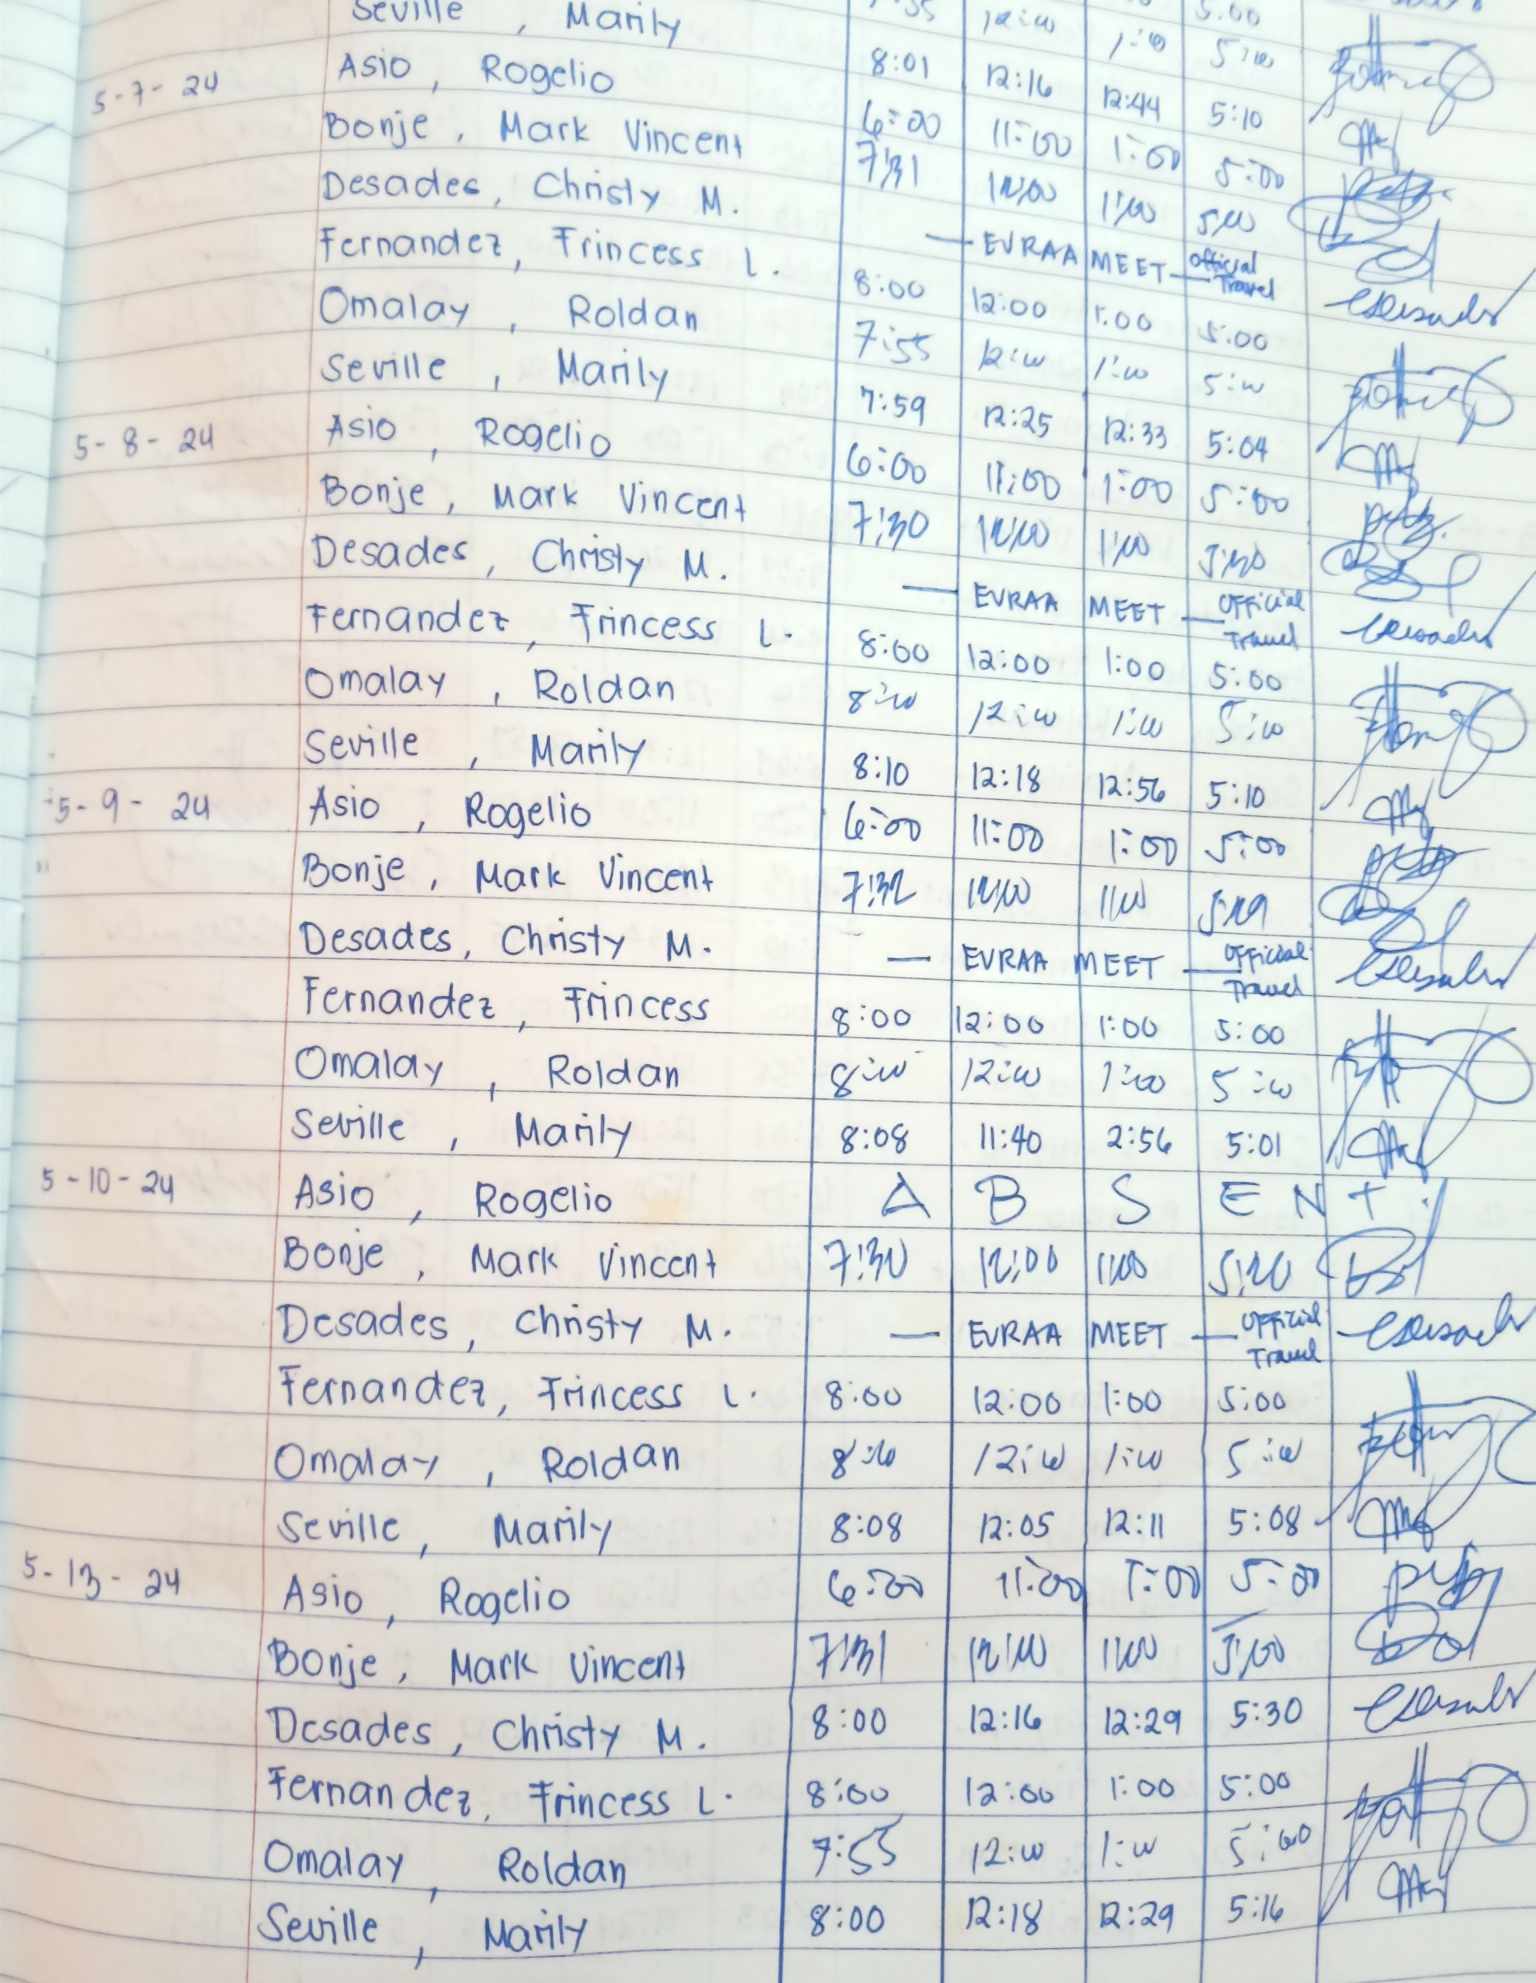 5:00
7:55 12:00 1:00 5:00
Seville, Marily 8:01 12:16 12:44 5:10
5-7-24 Asio, Rogelio 6:00 11:00 1:00 5:00
Bonje, Mark Vincent 7:31 12:00 1:00 5:00
Desades, Christy M. — EVRAA MEET — Official Travel
Fernandez, Frincess L. 8:00 12:00 1:00 5:00
Omalay, Roldan 7:55 12:00 1:00 5:00
Seville, Marily 7:59 12:25 12:33 5:04
5-8-24 Asio, Rogelio 6:00 11:00 1:00 5:00
Bonje, Mark Vincent 7:30 12:00 1:00 5:00
Desades, Christy M. — EVRAA MEET — Official Travel
Fernandez, Frincess L. 8:00 12:00 1:00 5:00
Omalay, Roldan 8:00 12:00 1:00 5:00
Seville, Marily 8:10 12:18 12:56 5:10
5-9-24 Asio, Rogelio 6:00 11:00 1:00 5:00
Bonje, Mark Vincent 7:32 12:00 1:00
Desades, Christy M. — EVRAA MEET — Official Travel
Fernandez, Frincess 8:00 12:00 1:00 5:00
Omalay, Roldan 8:00 12:00 1:00 5:00
Seville, Marily 8:08 11:40 2:56 5:01
5-10-24 Asio, Rogelio A B S E N T
Bonje, Mark Vincent 7:30 12:00 1:00
Desades, Christy M. — EVRAA MEET — Official Travel
Fernandez, Frincess L. 8:00 12:00 1:00 5:00
Omalay, Roldan 8:00 12:00 1:00 5:00
Seville, Marily 8:08 12:05 12:11 5:08
5-13-24 Asio, Rogelio 6:00 11:00 1:00 5:00
Bonje, Mark Vincent 7:31 12:00 1:00 5:00
Desades, Christy M. 8:00 12:16 12:29 5:30
Fernandez, Frincess L. 8:00 12:00 1:00 5:00
Omalay, Roldan 7:55 12:00 1:00 5:00
Seville, Marily 8:00 12:18 12:29 5:16